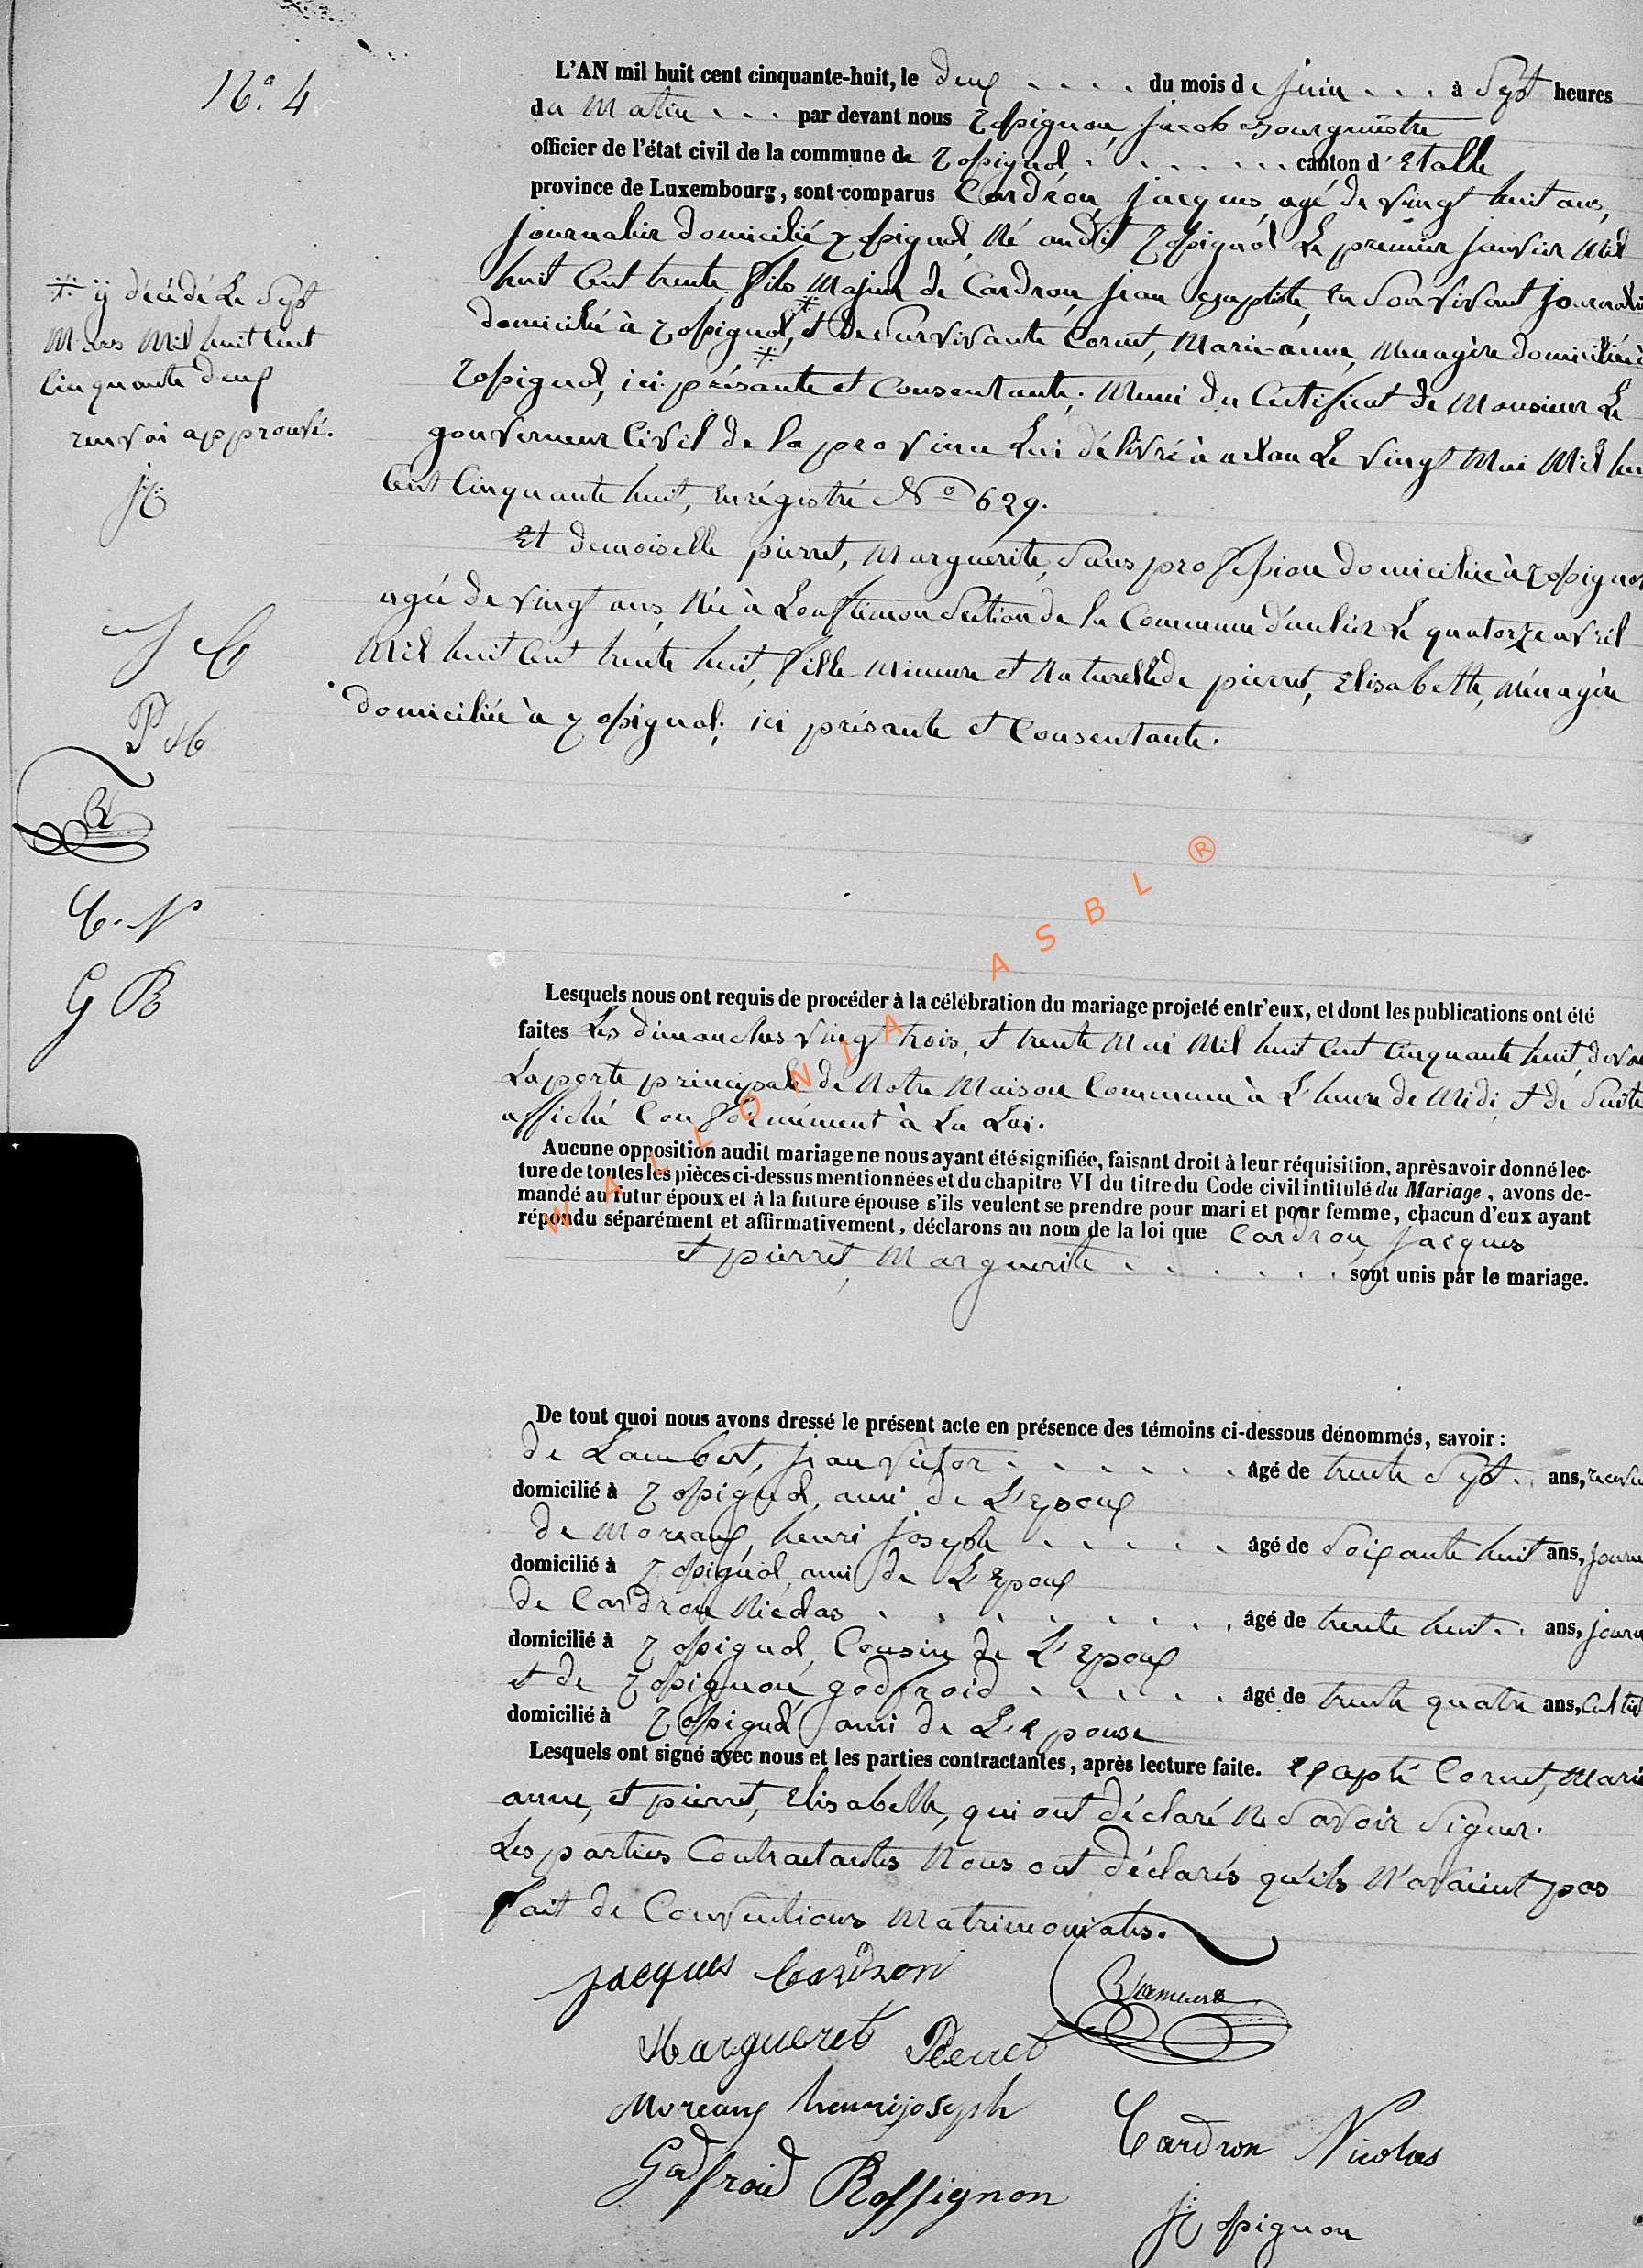 N.° 4
L'AN mil huit cent cinquante-huit, le deux . . . . du mois de juin . . . à Sept heures
du Matin . . . par devant nous Rossignon, jacob Bourgmestre
officier de l'état civil de la commune de Rossignol . . . . . . . canton d' Etalle
province de Luxembourg, sont comparus Cardron, jacques, agé de vingt huit ans,
journalier domicilié Rossignol, Né audit Rossignol Le premier janvier Mil
huit Cent trente, fils Majeur de Cardron, jean Baptiste, en Son vivant journalier
domicilié à Rossignol, * et de Survivante Cornet, Marie-anne, Menagère domiciliée à
Rossignol, ici présante et Consentante; Muni du Certificat de Monsieur Le
gouverneur Civil de la province Lui délivré à arlon Le vingt Mai Mil hui
Cent Cinquante huit, Enrégistré N° 629.
* ÿ décédé Le Sept
Mars Mil huit Cent
Cinquante deux
renvoi approuvé.
JR
Et demoiselle pierret, Marguerite, Sans profession domiciliée à Rossignol
agée de vingt ans, Née à Louftémon Section de la Commune d'anlier Le quatorze avril
Mil huit Cent trente huit, fille Mineure et Naturelle de pierret, Elisabette, Ménagère
domiciliée à Rossignol; ici présante et Consentante.
J C
P M
C. N
G B
Lesquels nous ont requis de procéder à la célébration du mariage projeté entr'eux, et dont les publications ont été
faites Les dimanches vingt trois, et trente Mai Mil huit Cent Cinquante huit, devant
La porte principale de Notre Maison Commune à L'heure de Midi, et de Suite
affiché Conformément à La Loi.
Aucune opposition audit mariage ne nous ayant été signifiée, faisant droit à leur réquisition, après avoir donné lec-
ture de toutes les pièces ci-dessus mentionnées et du chapitre VI du titre du Code civil intitulé du Mariage, avons de-
mandé au futur époux et à la future épouse s'ils veulent se prendre pour mari et pour femme, chacun d'eux ayant
répondu séparément et affirmativement, déclarons au nom de la loi que Cardron, jacques
et pierret, Marguerite . . . . . . . sont unis par le mariage.
De tout quoi nous avons dressé le présent acte en présence des témoins ci-dessous dénommés, savoir :
de Lambert, jean Victor . . . . . . âgé de trente Sept . . ans,
domicilié à Rossignol, ami de L'Epoux
de Moreaux, henri joseph . . . . . âgé de Soixante huit ans, journ
domicilié à Rossignol, ami de L'Epoux
de Cardron Nicolas . . . . . . . . âgé de trente huit . . ans, journ
domicilié à Rossignol, Cousin de L'Epoux
et de Rossignon, godfroid . . . . . âgé de trente quatre ans, Cultiv
domicilié à Rossignol ami de L'Epouse
Lesquels ont signé avec nous et les parties contractantes, après lecture faite. Excepté Cornet, Marie
anne, et pierret, Elisabette, qui ont déclaré Ne Savoir Signer.
Les parties Contractantes Nous ont déclarés qu'ils N'avaient pas
fait de Conventions Matrimoniales.
jacques Cardron
Margueret Pierret
Moreaux henrijoseph
Cardron Nicolas
Godfroid Rossignon
JRossignon
WALLONIA ASBL ®